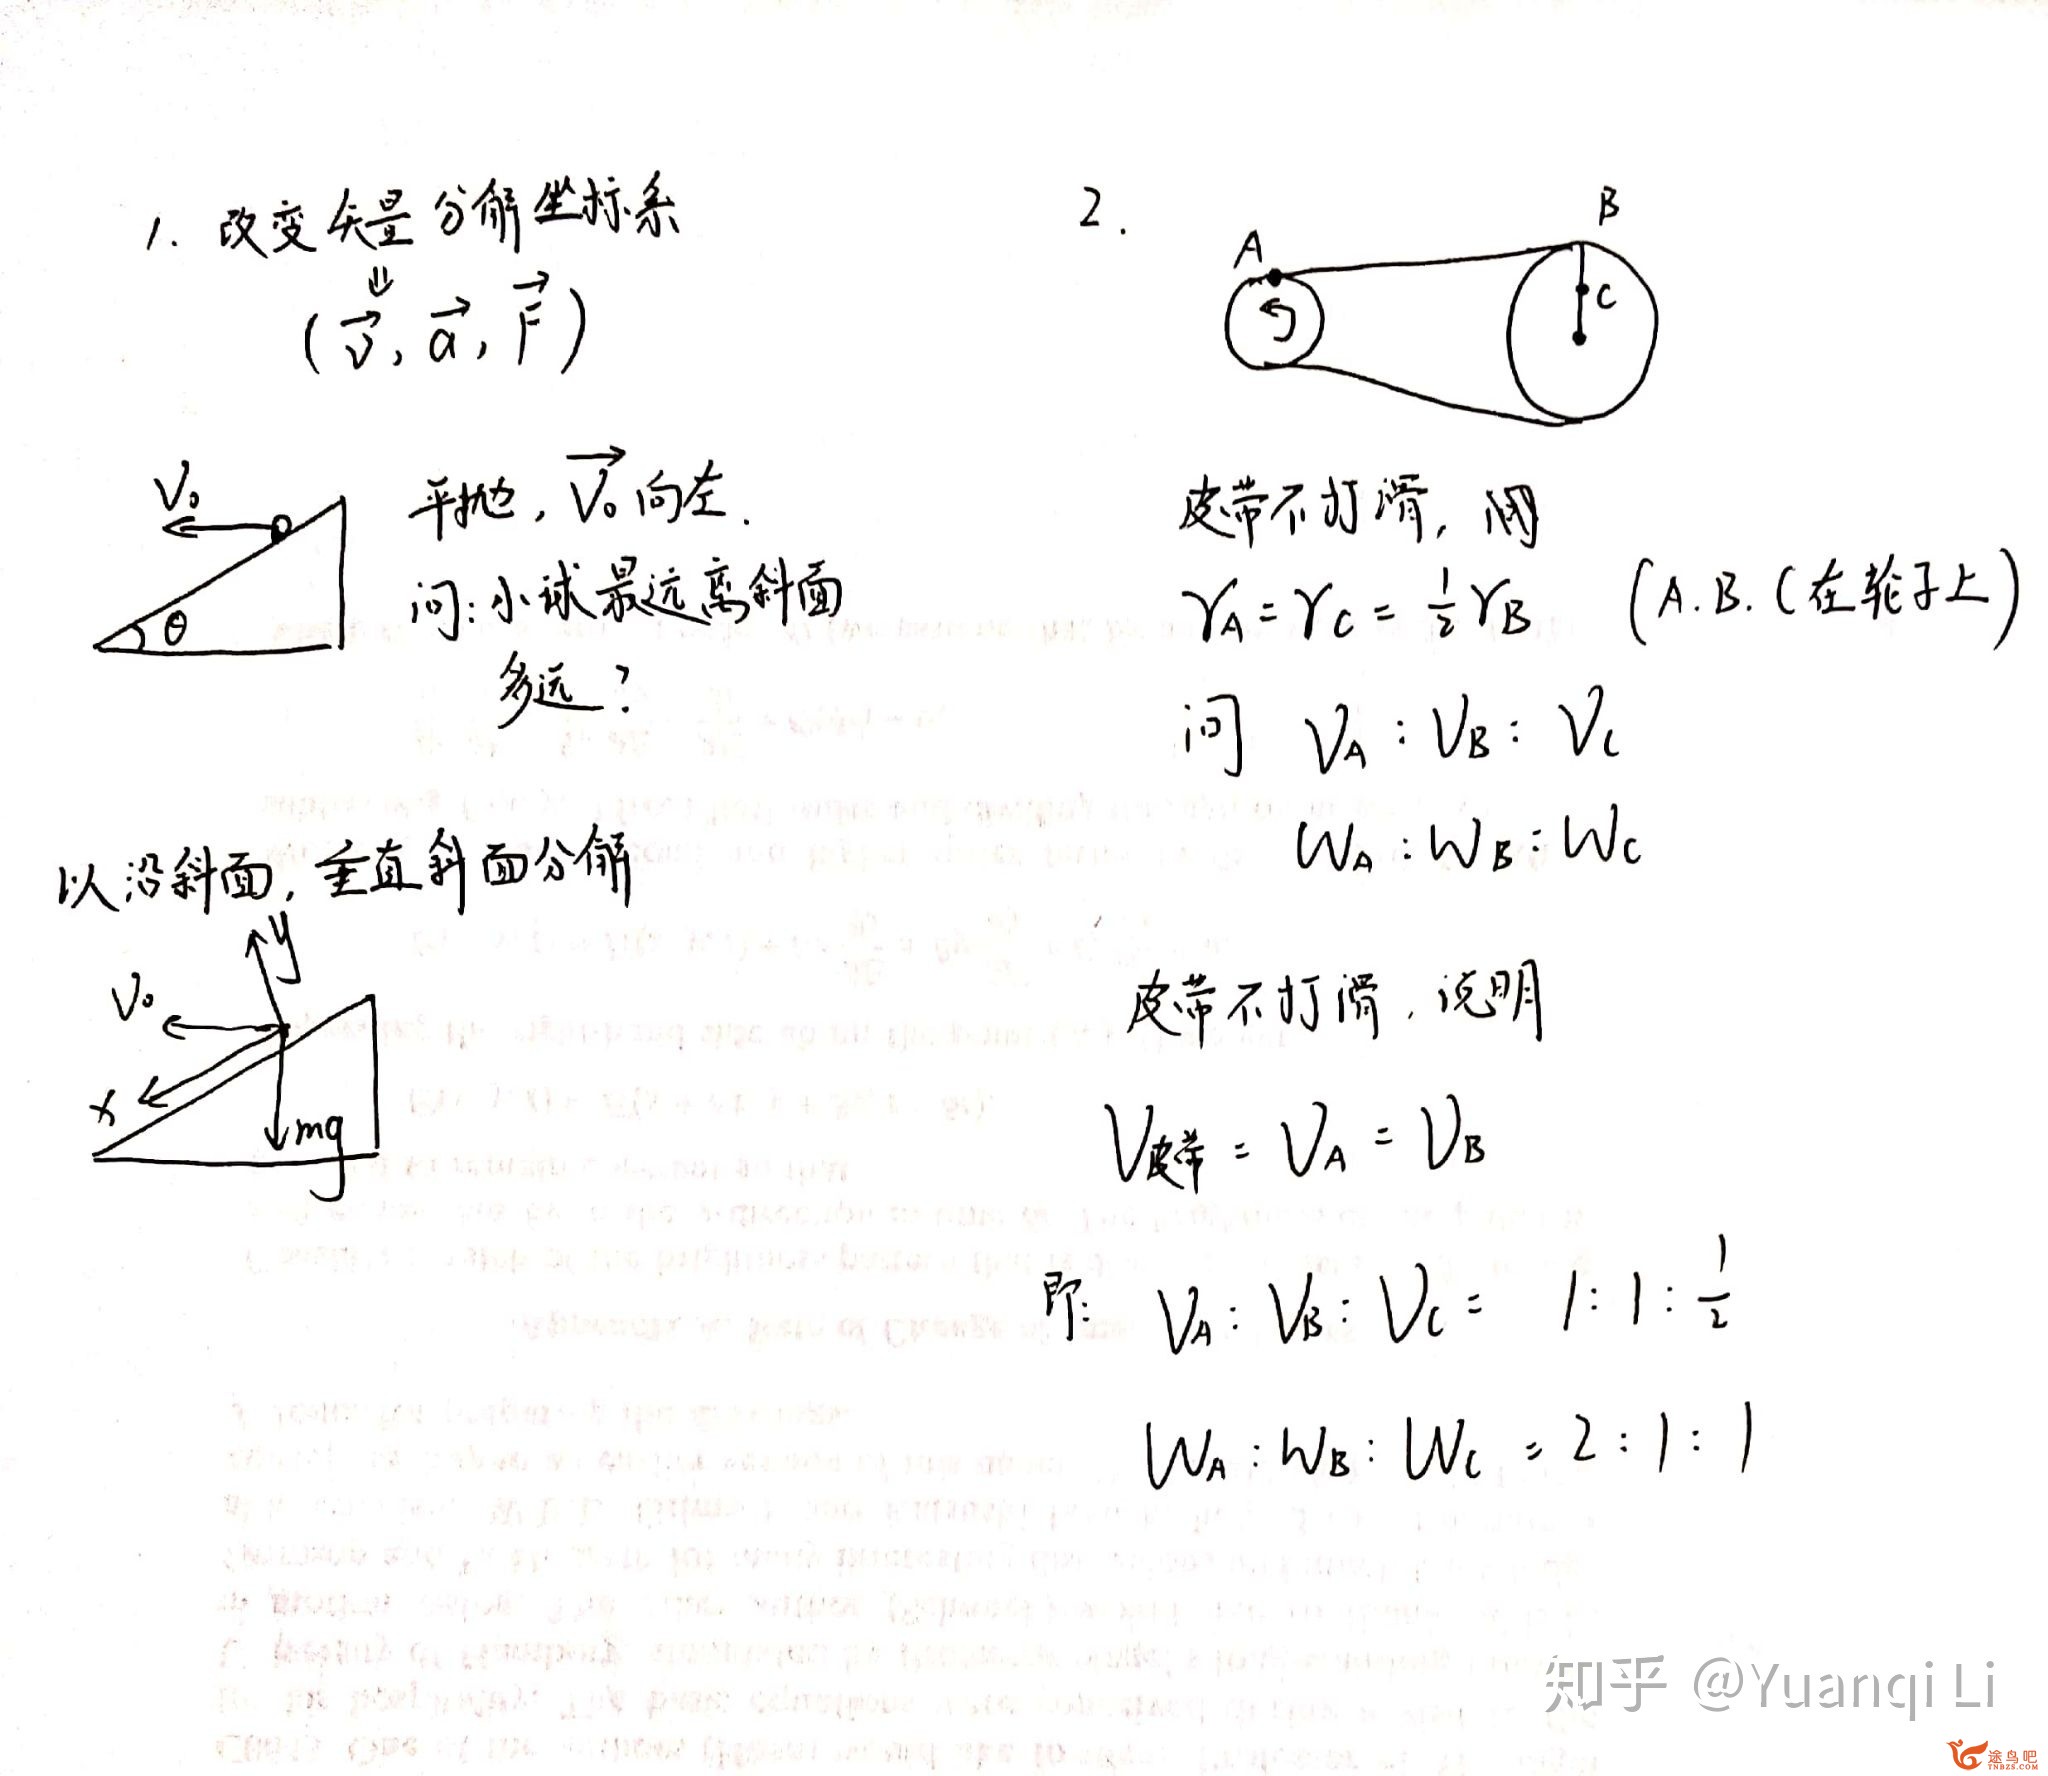 1. 改变矢量分解坐标系
(v⃗, a⃗, F⃗)
V₀
θ
平抛, V₀⃗ 向左.
问: 小球最远离斜面
多远?
以沿斜面, 垂直斜面分解
y
V₀
x
mg
2.
A
B
C
皮带不打滑,
γA = γC = ½ γB (A.B.C在轮子上)
问 VA : VB : VC
WA : WB : WC
皮带不打滑, 说明
V皮带 = VA = VB
即: VA : VB : VC = 1 : 1 : ½
WA : WB : WC = 2 : 1 : 1
知乎 @Yuanqi Li
途鸟吧
TNBZS.COM